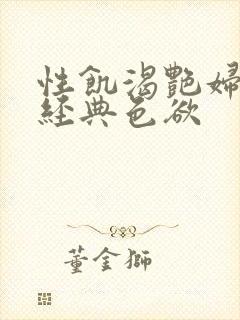 性飢渴艷婦
經典色欲
董金獅